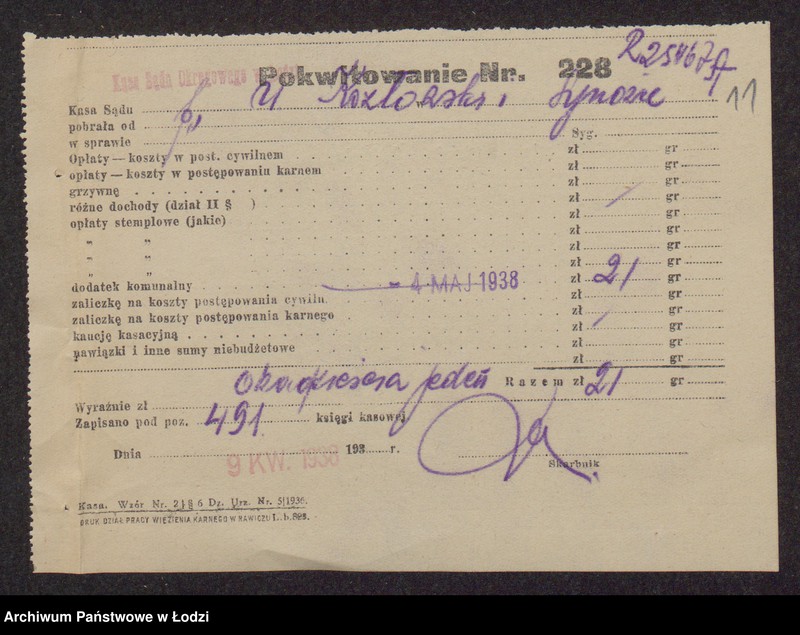 R 25467 A
Kasa Sądu Okręgowego
Pokwitowanie Nr. 228
11
Kasa Sądu
pobrała od Kozłowski i Synowie
w sprawie Syg.
Opłaty—koszty w post. cywilnem zł gr
opłaty—koszty w postępowaniu karnem zł gr
grzywnę zł gr
różne dochody (dział II § ) zł gr
opłaty stemplowe (jakie) zł gr
„ „ zł gr
„ „ zł gr
„ „ zł gr
dodatek komunalny - 4 MAJ 1938 zł 21 gr
zaliczkę na koszty postępowania cywiln. zł gr
zaliczkę na koszty postępowania karnego zł gr
kaucję kasacyjną zł gr
nawiązki i inne sumy niebudżetowe zł gr
Razem zł 21 gr
Wyraźnie zł dwadzieścia jeden
Zapisano pod poz. 491 księgi kasowej
Dnia 9 KW. 1938 193 r.
Skarbnik
Kasa. Wzór Nr. 2 § 6 Dz. Urz. Nr. 5/1936.
DRUK DZIAŁ PRACY WIĘZIENIA KARNEGO W RAWICZU L. b. 828.
Archiwum Państwowe w Łodzi